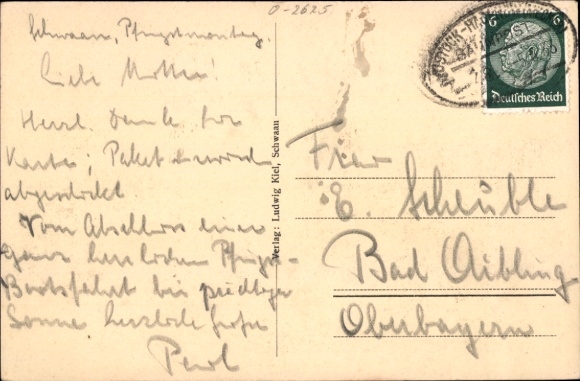 0-2625
Schwaan, Pfingstmontag.
Liebe Mutter!
Herzl. Dank für
Karte; Paket wird
abgeschickt
Vom Abschluss einer
ganz herrlichen Pfingst-
Bootsfahrt bei prächtiger
Sonne herzliche Grüße
Verlag: Ludwig Kiel, Schwaan
6 6
Deutsches Reich
ROSTOCK
BAHNPOST
Frau
E. Scheuble
Bad Aibling
Oberbayern